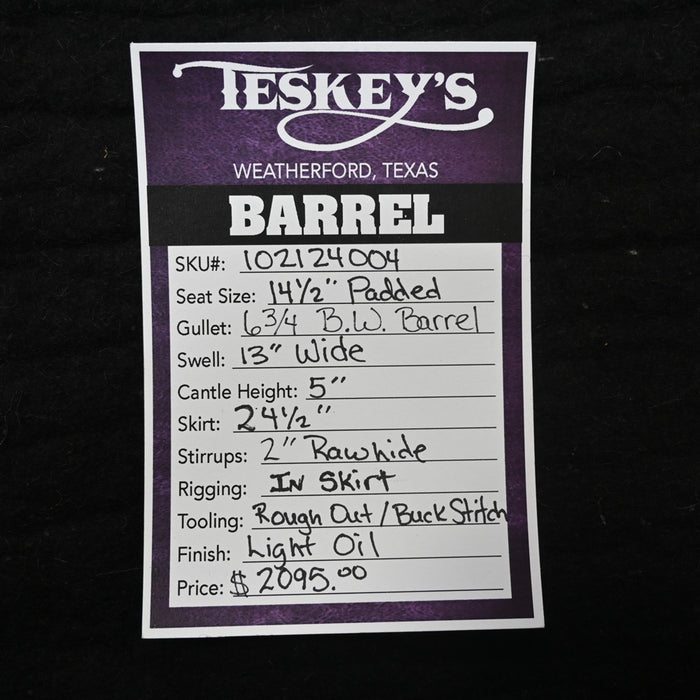 TESKEY'S
WEATHERFORD, TEXAS
BARREL
SKU#: 102124004
Seat Size: 14½" Padded
Gullet: 6 3/4 B.W. Barrel
Swell: 13" Wide
Cantle Height: 5"
Skirt: 24½"
Stirrups: 2" Rawhide
Rigging: IN Skirt
Tooling: Rough Out / Buck Stitch
Finish: Light Oil
Price: $ 2095.00